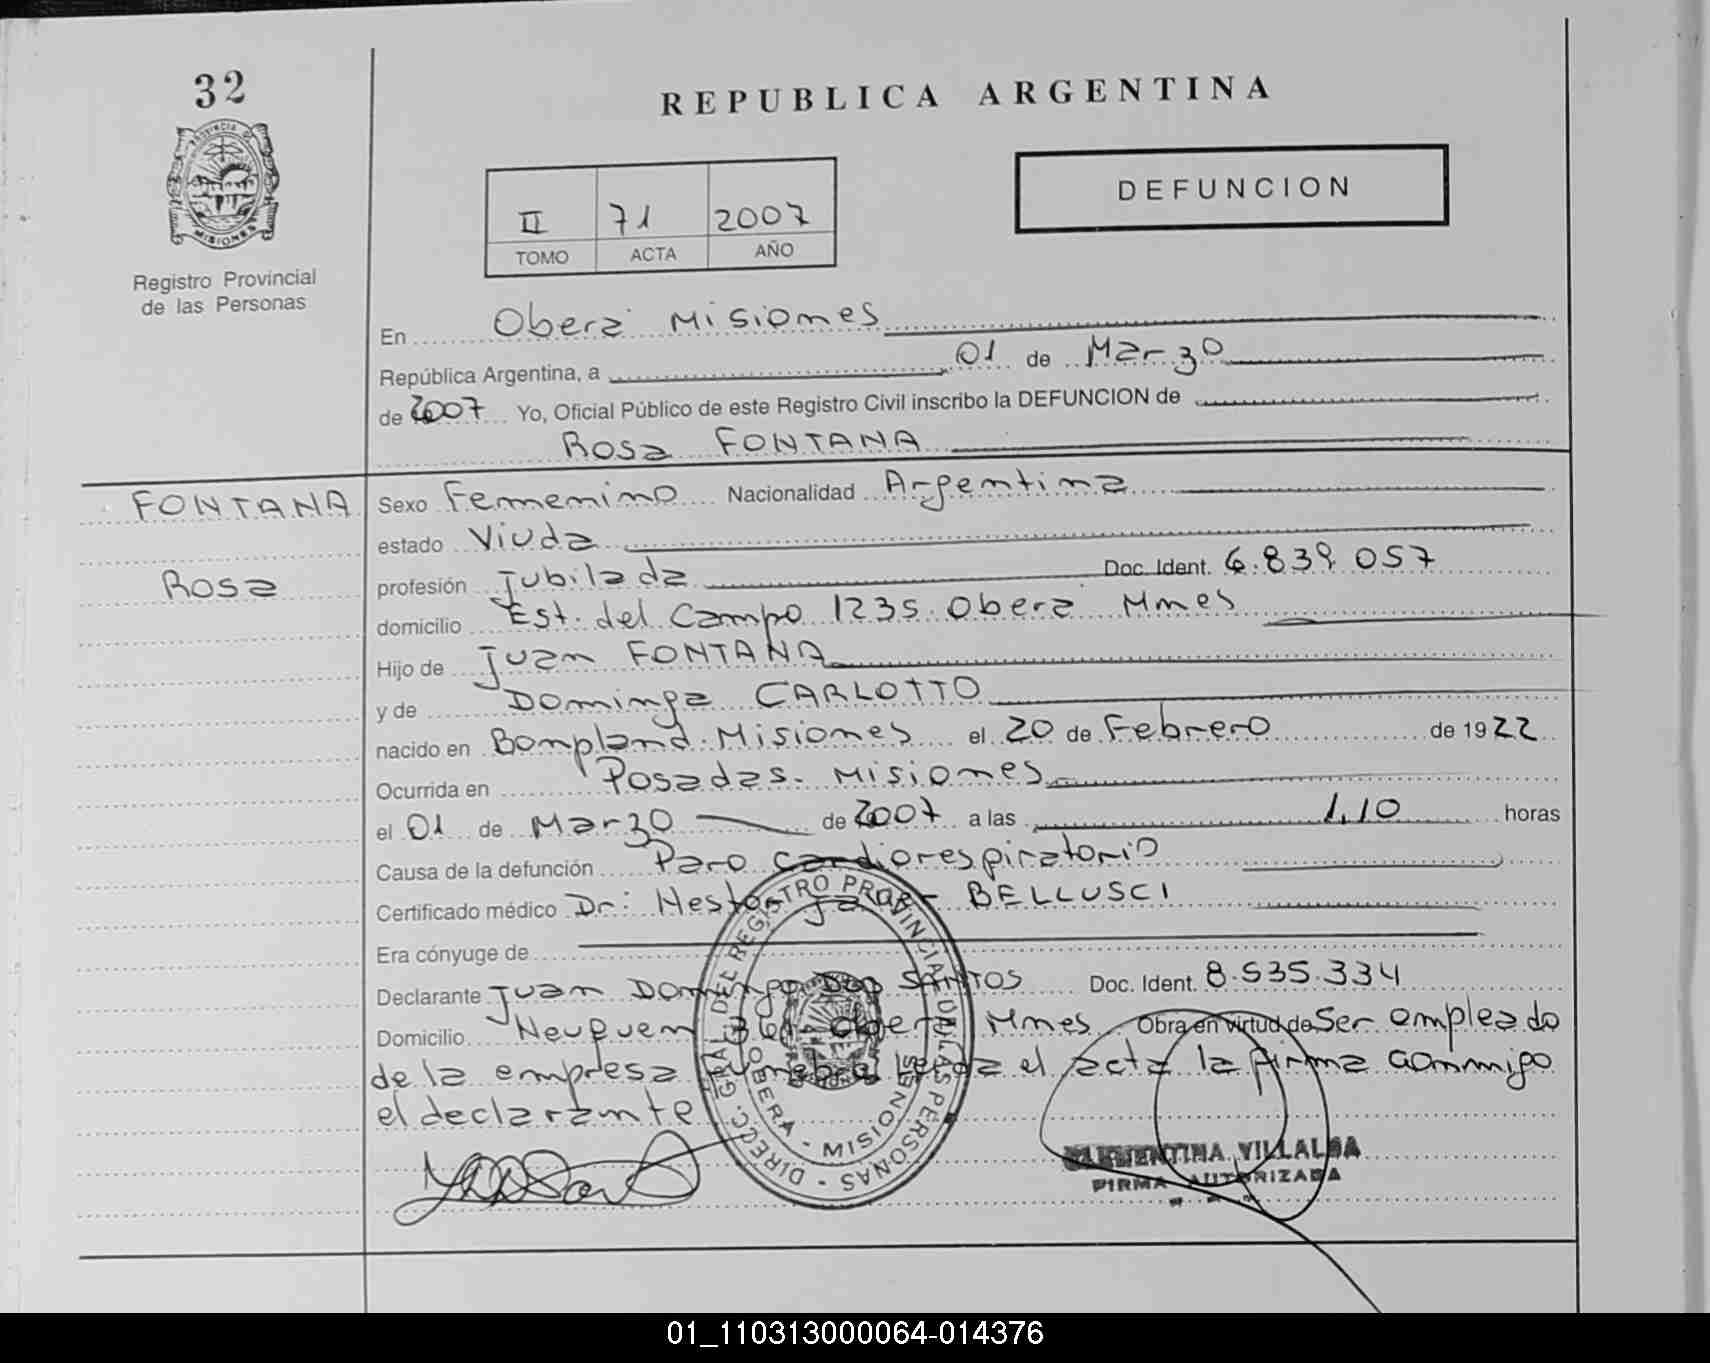 32
REPUBLICA ARGENTINA
PROVINCIA DE
MISIONES
Registro Provincial
de las Personas
DEFUNCION
II 71 2007
TOMO ACTA AÑO
En Obera Misiones
República Argentina, a 01 de Marzo
de 2007 Yo, Oficial Público de este Registro Civil inscribo la DEFUNCION de
Rosa FONTANA
FONTANA
Rosa
Sexo Femenino Nacionalidad Argentina
estado Viuda
profesión Jubilada Doc. Ident. 6.839.057
domicilio Est. del Campo 1235 Obera Mnes
Hijo de Juan FONTANA
y de Dominga CARLOTTO
nacido en Bompland. Misiones el 20 de Febrero de 1922
Ocurrida en Posadas. Misiones
el 01 de Marzo de 2007 a las 1,10 horas
Causa de la defunción Paro cardiorespiratorio
Certificado médico Dr: Nestor BELLUSCI
Era cónyuge de
Declarante Juan Domingo Dos SANTOS Doc. Ident. 8.535.334
Domicilio Neuquen Obera Mnes Obra en virtud de Ser empleado
de la empresa Leida el acta la firma conmigo
el declarante
DIRECC. GRAL. DEL REGISTRO PROVINCIAL DE LAS PERSONAS -
OBERA - MISIONES
VILLALBA
FIRMA AUTORIZADA
01_110313000064-014376